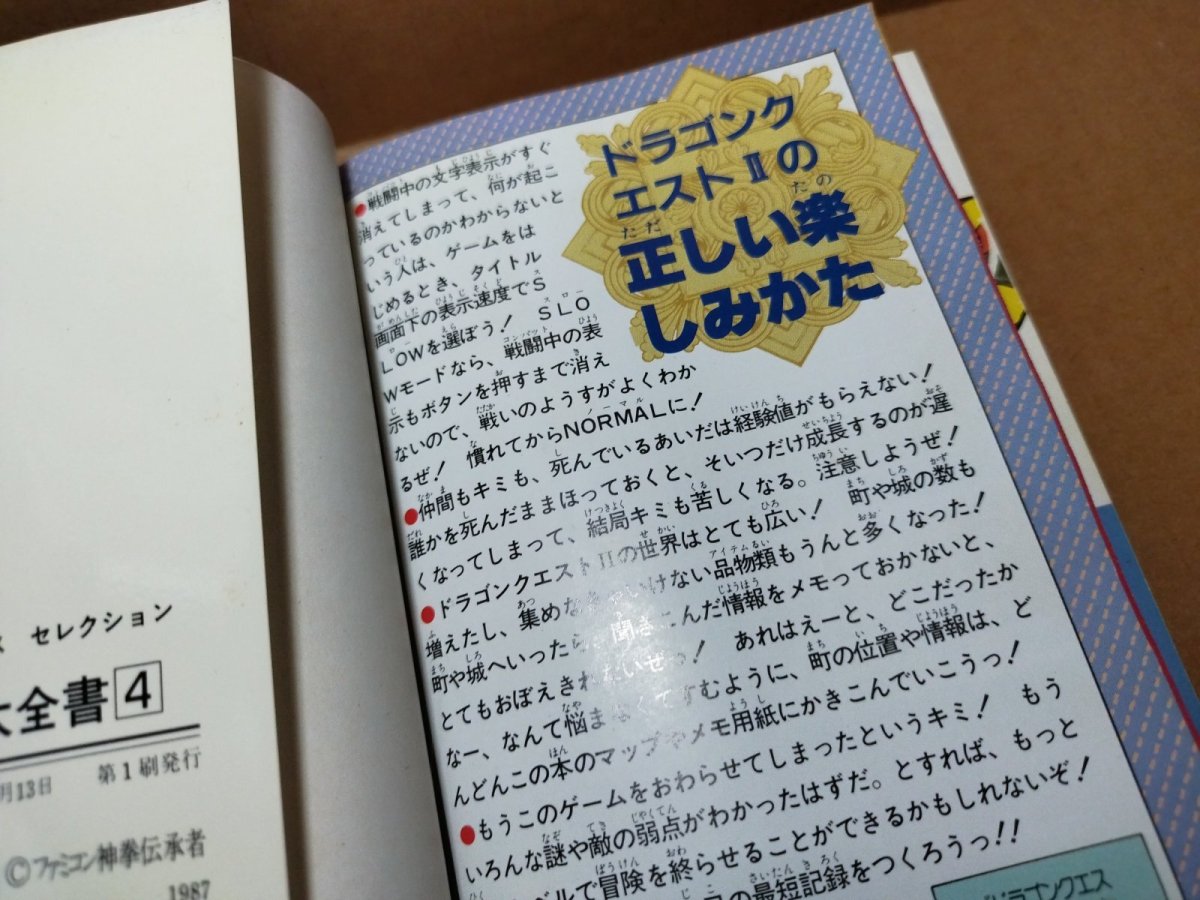 セレクション
大全書4
月13日 第1刷発行
©ファミコン神拳伝承者
1987
ドラゴンク
エストⅡの
正しい楽
しみかた
●戦闘中の文字表示がすぐ
消えてしまって、何が起こ
っているのかわからないと
いう人は、ゲームをは
じめるとき、タイトル
画面下の表示速度でS
LOWを選ぼう! SLO
Wモードなら、戦闘中の表
示もボタンを押すまで消え
ないので、戦いのようすがよくわか
るぜ! 慣れてからNORMALに!
●仲間もキミも、死んでいるあいだは経験値がもらえない!
誰かを死んだままほっておくと、そいつだけ成長するのが遅
くなってしまって、結局キミも苦しくなる。注意しようぜ!
●ドラゴンクエストⅡの世界はとても広い! 町や城の数も
増えたし、集めなきゃいけない品物類もうんと多くなった!
町や城へいったら、聞きこんだ情報をメモっておかないと、
とてもおぼえきれないぜっ! あれはえーと、どこだったか
なー、なんて悩まなくてすむように、町の位置や情報は、ど
んどんこの本のマップやメモ用紙にかきこんでいこうっ!
●もうこのゲームをおわらせてしまったというキミ! もう
いろんな謎や敵の弱点がわかったはずだ。とすれば、もっと
ベルで冒険を終らせることができるかもしれないぞ!
の最短記録をつくろうっ!!
ドラゴンクエス